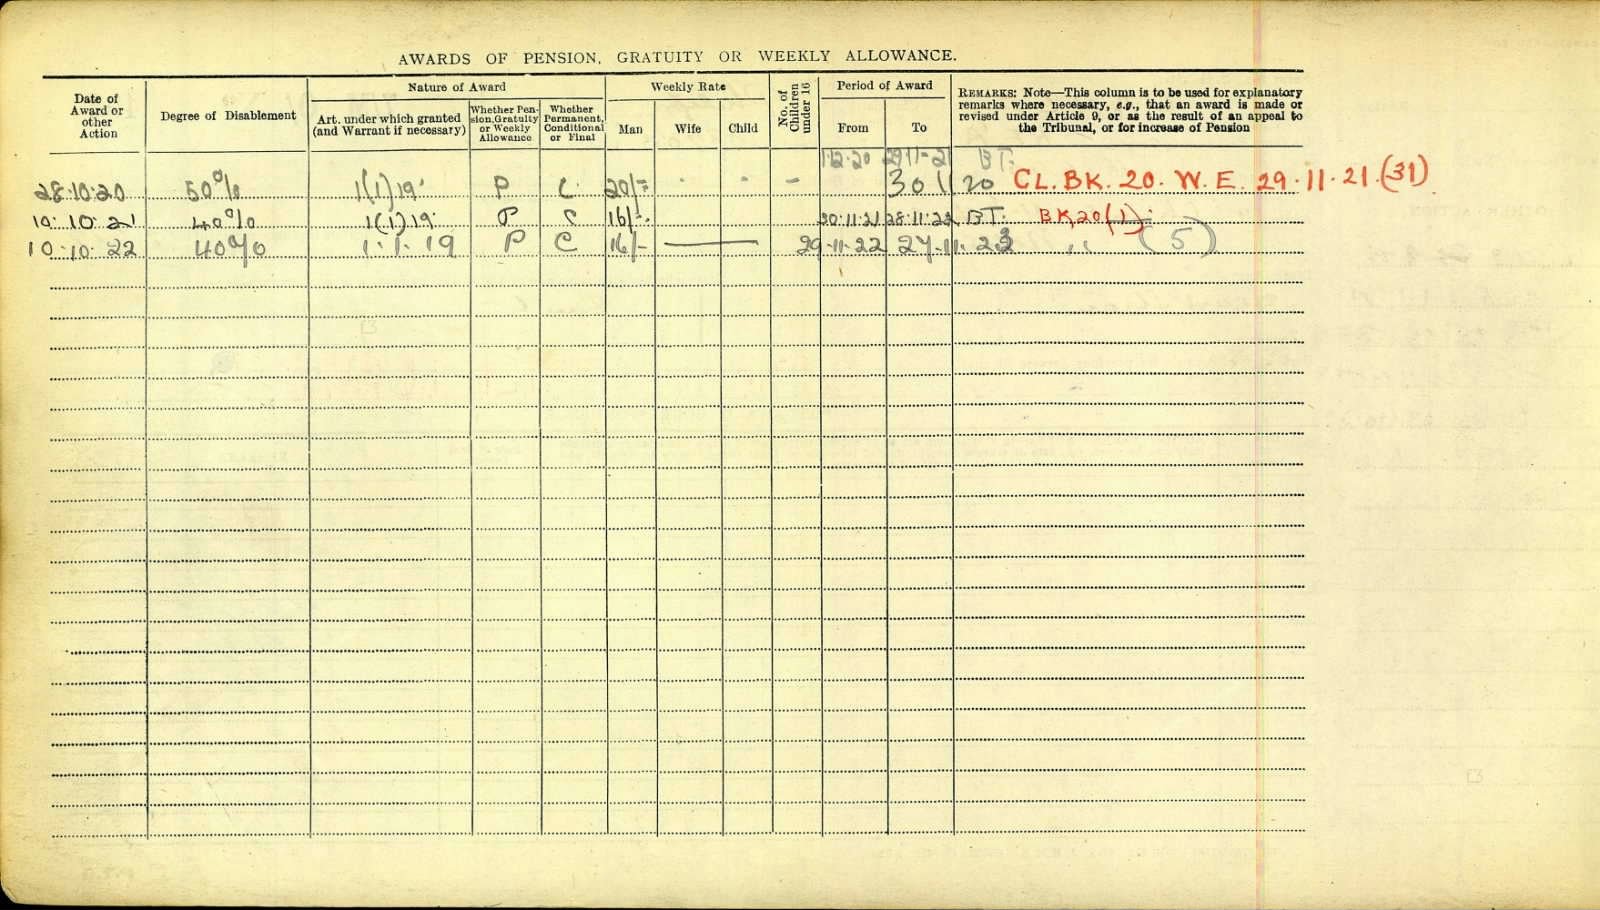 AWARDS OF PENSION, GRATUITY OR WEEKLY ALLOWANCE.
Date of Award or other Action
Degree of Disablement
Nature of Award
Art. under which granted (and Warrant if necessary)
Whether Pension, Gratuity or Weekly Allowance
Whether Permanent, Conditional or Final
Weekly Rate
Man
Wife
Child
No. of Children under 16
Period of Award
From
To
REMARKS: Note—This column is to be used for explanatory
remarks where necessary, e.g., that an award is made or
revised under Article 9, or as the result of an appeal to
the Tribunal, or for increase of Pension
1.12.20 29.11.21 BT.
28.10.20 50% 1(1)19. P C 20/= - - - 30 11 20 CL. BK. 20. W. E. 29.11.21.(31)
10.10.21 40% 1(1)19. P C 16/-. 28.11.22 BT. BK 20(1).
10.10.22 40% 1.1.19 P C 16/- — 29.11.22 27.11. ,, (5)